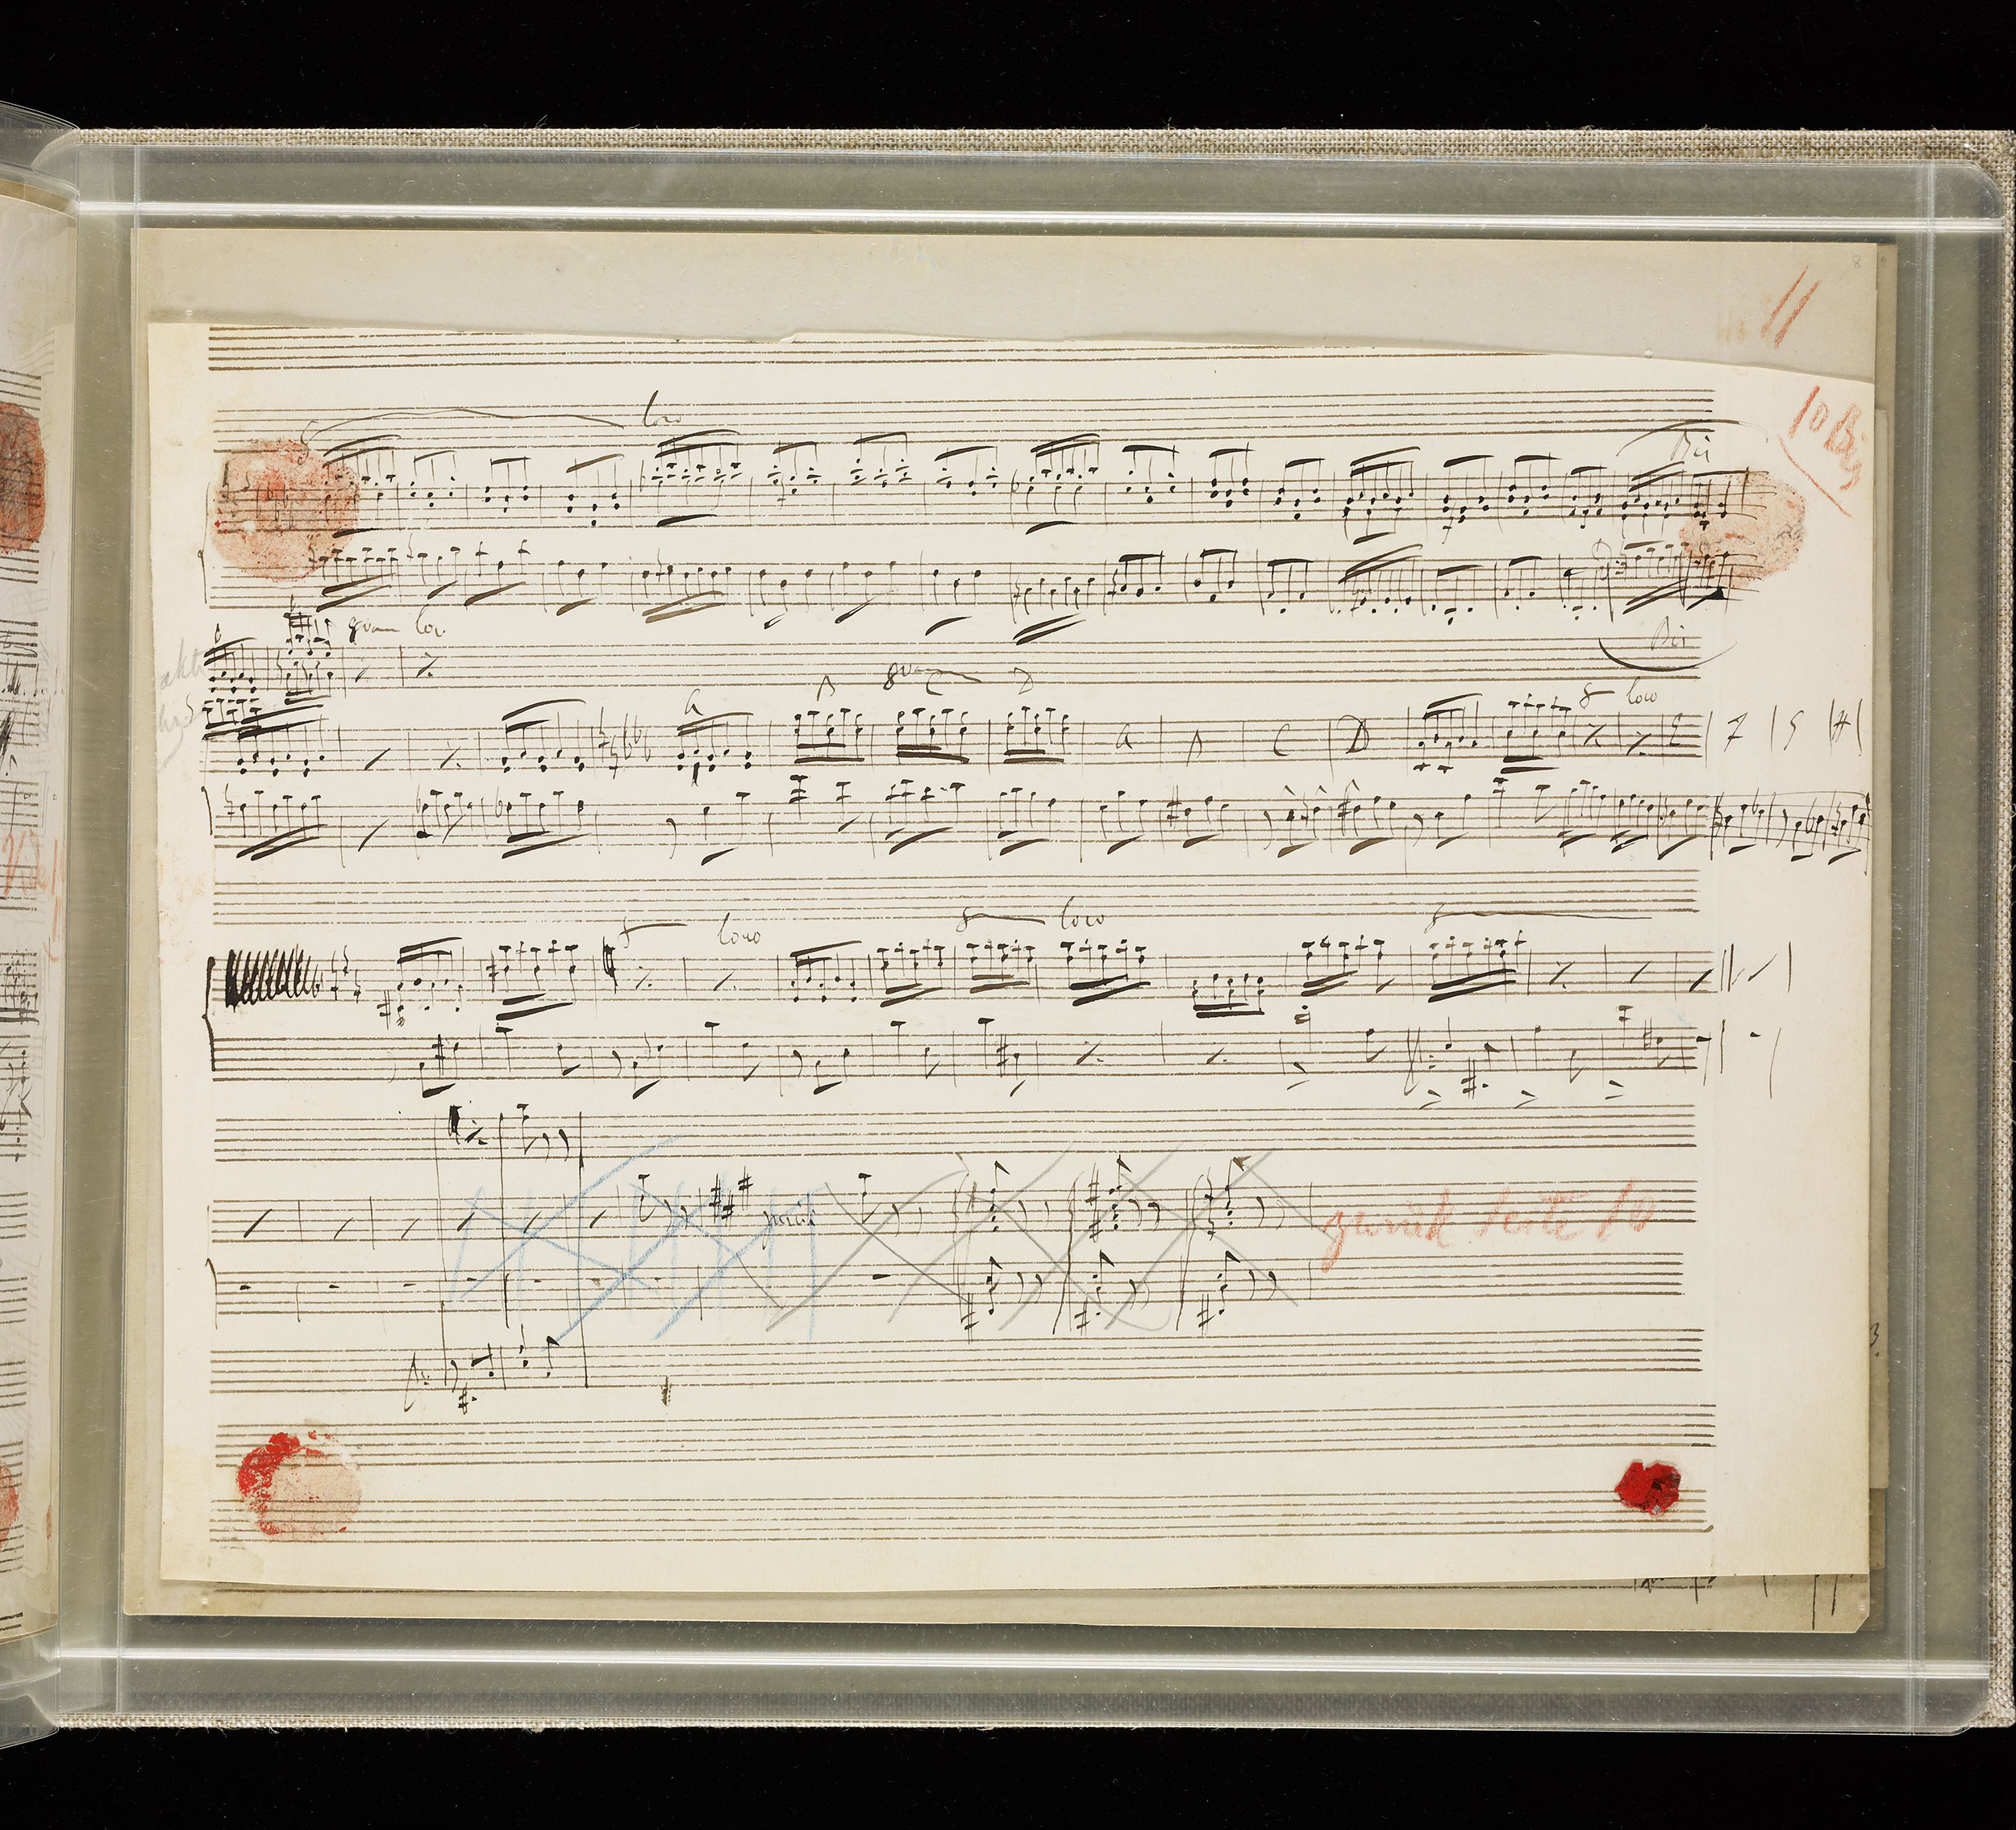 11
10 Bis
loco
Bis
8va loco
Bis
A B 8va C D
8 loco
A B C D
E F G H
8 loco 8 loco 8
zurück Seite 10